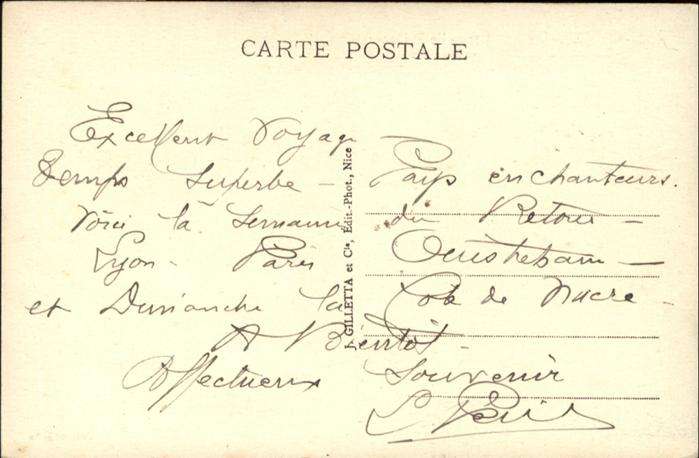 CARTE POSTALE
Excellent Voyage
Temps Superbe - Pays enchanteurs.
Voici la Semaine du Retour -
Lyon - Paris Ouistreham -
et Dimanche la Côte de Nacre -
A Bientôt -
Affectueux Souvenir
GILLETTA et Cie, Édit.-Phot., Nice